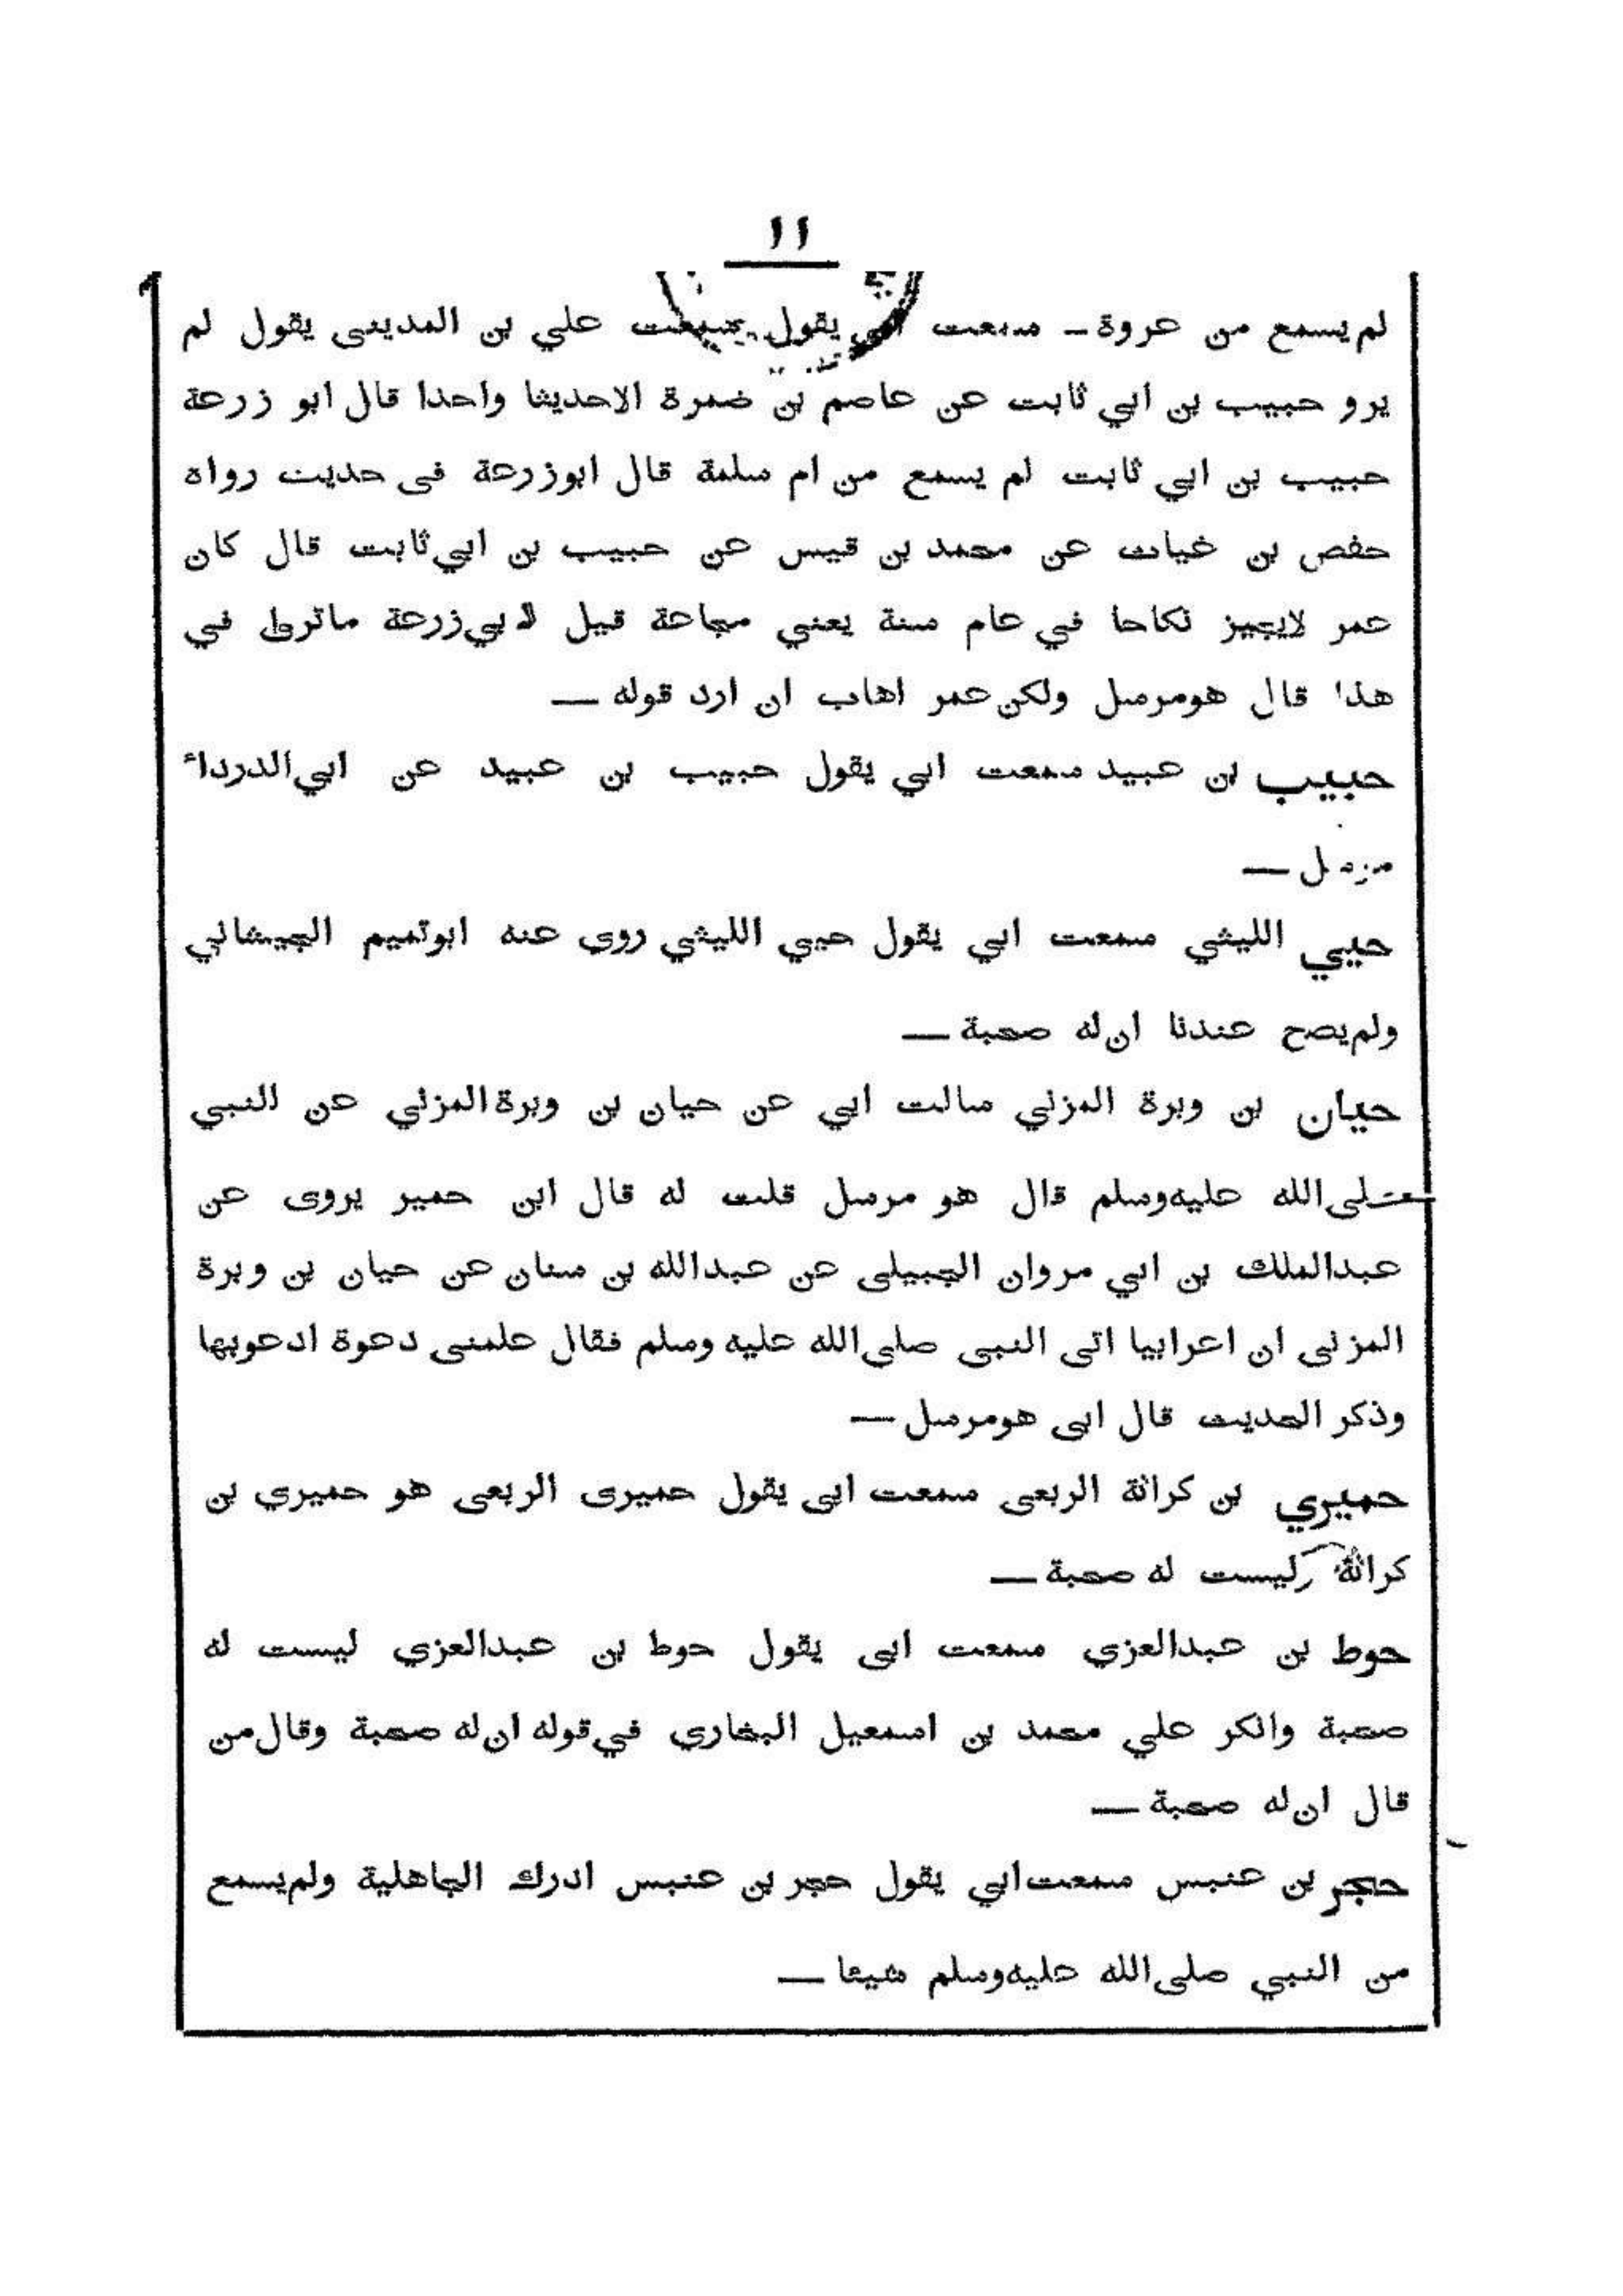 ١١
لم يسمع من عروة — سمعت ابي يقول سمعت علي بن المدينى يقول لم
يرو حبيب بن ابي ثابت عن عاصم بن ضمرة الاحديثا واحدا قال ابو زرعة
حبيب بن ابي ثابت لم يسمع من ام سلمة قال ابوزرعة فى حديث رواه
حفص بن غياث عن محمد بن قيس عن حبيب بن ابي ثابت قال كان
عمر لايجيز نكاحا في عام سنة يعني مجاعة قيل لابي زرعة ماترى في
هذا قال هومرسل ولكن عمر اهاب ان ارد قوله —
حبيب بن عبيد سمعت ابي يقول حبيب بن عبيد عن ابي الدرداء
مرسل —
حيي الليثي سمعت ابي يقول حيي الليثي روى عنه ابوتميم الجيشاني
ولم يصح عندنا ان له صحبة —
حيان بن وبرة المزني سالت ابي عن حيان بن وبرة المزني عن النبي
صلى الله عليه وسلم قال هو مرسل قلت له قال ابن حمير يروى عن
عبدالملك بن ابي مروان الجبيلى عن عبدالله بن سنان عن حيان بن وبرة
المزنى ان اعرابيا اتى النبى صلى الله عليه وسلم فقال علمنى دعوة ادعوبها
وذكر الحديث قال ابى هومرسل —
حميري بن كراثة الربعى سمعت ابى يقول حميرى الربعى هو حميري بن
كراثة ليست له صحبة —
حوط بن عبدالعزي سمعت ابى يقول حوط بن عبدالعزي ليست له
صحبة وانكر علي محمد بن اسمعيل البخاري في قوله ان له صحبة وقال من
قال ان له صحبة —
حجر بن عنبس سمعت ابي يقول حجر بن عنبس ادرك الجاهلية ولم يسمع
من النبي صلى الله عليه وسلم شيئا —